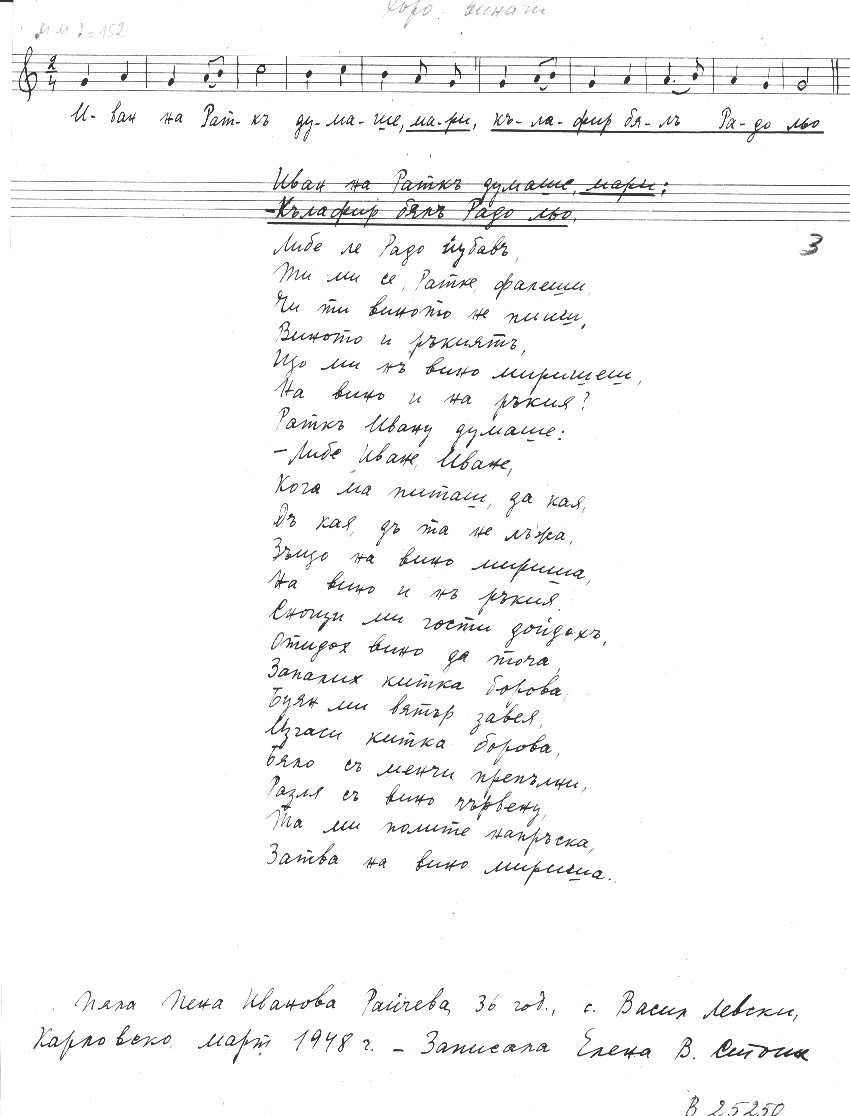 Хоро - винаги
ММ ♩=152
2/4
И- ван на Рат- къ ду-ма-ше, ма-ри, къ-ла-фир бя-лъ Ра-до льо
Иван на Раткъ думаше, мари:
-Кълафир бялъ Радо льо,
Либе ле Радо йубавъ,
Ти ми се, Ратке, фалеши,
Чи ти виното не пииш,
Виното и ръкиятъ,
Що ми нъ вино миришеш,
На вино и на ръкия?
Раткъ Ивану думаше:
-Либе Иване, Иване,
Кога ма питаш, да кая,
Дъ кая, дъ та не лъжа,
Зъщо на вино мириша,
На вино и нъ ръкия.
Снощи ми гости дойдохъ,
Отидох вино да точа,
Запалих китка борова,
Буян ми вятър завея,
Изгаси китка борова,
Бяло съ менчи препълни,
Разля съ вино чървену,
Та ми полите напръска,
Затва на вино мириша.
3
Пяла Пена Иванова Райчева, 36 год., с. Васил Левски,
Карловско, март 1948 г. – Записала Елена В. Стоин
В 25250